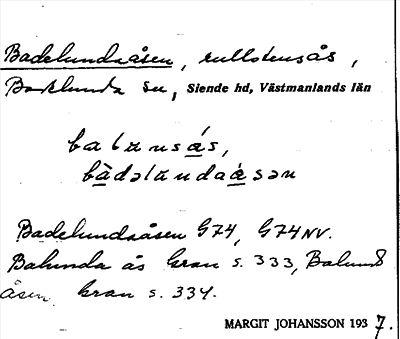 Badelundaåsen, rullstensås,
Badelunda sn, Siende hd, Västmanlands län
balunsás,
bàdəlundaásən
Badelundaåsen G74, G74 NV.
Balunda ås Gran s. 333, Balunds
åsen Gran s. 334.
MARGIT JOHANSSON 1937.